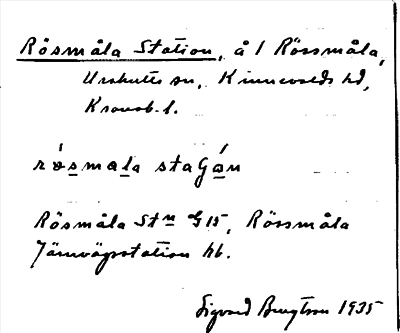 Rösmåla Station, å 1 Rössmåla,
Urshults sn, Kinnevalds hd,
Kronob. l.
rö́smala staGán
Rösmåla Stn G 15, Rössmåla
Järnvägsstation hb.
Sigvard Bengtson 1935